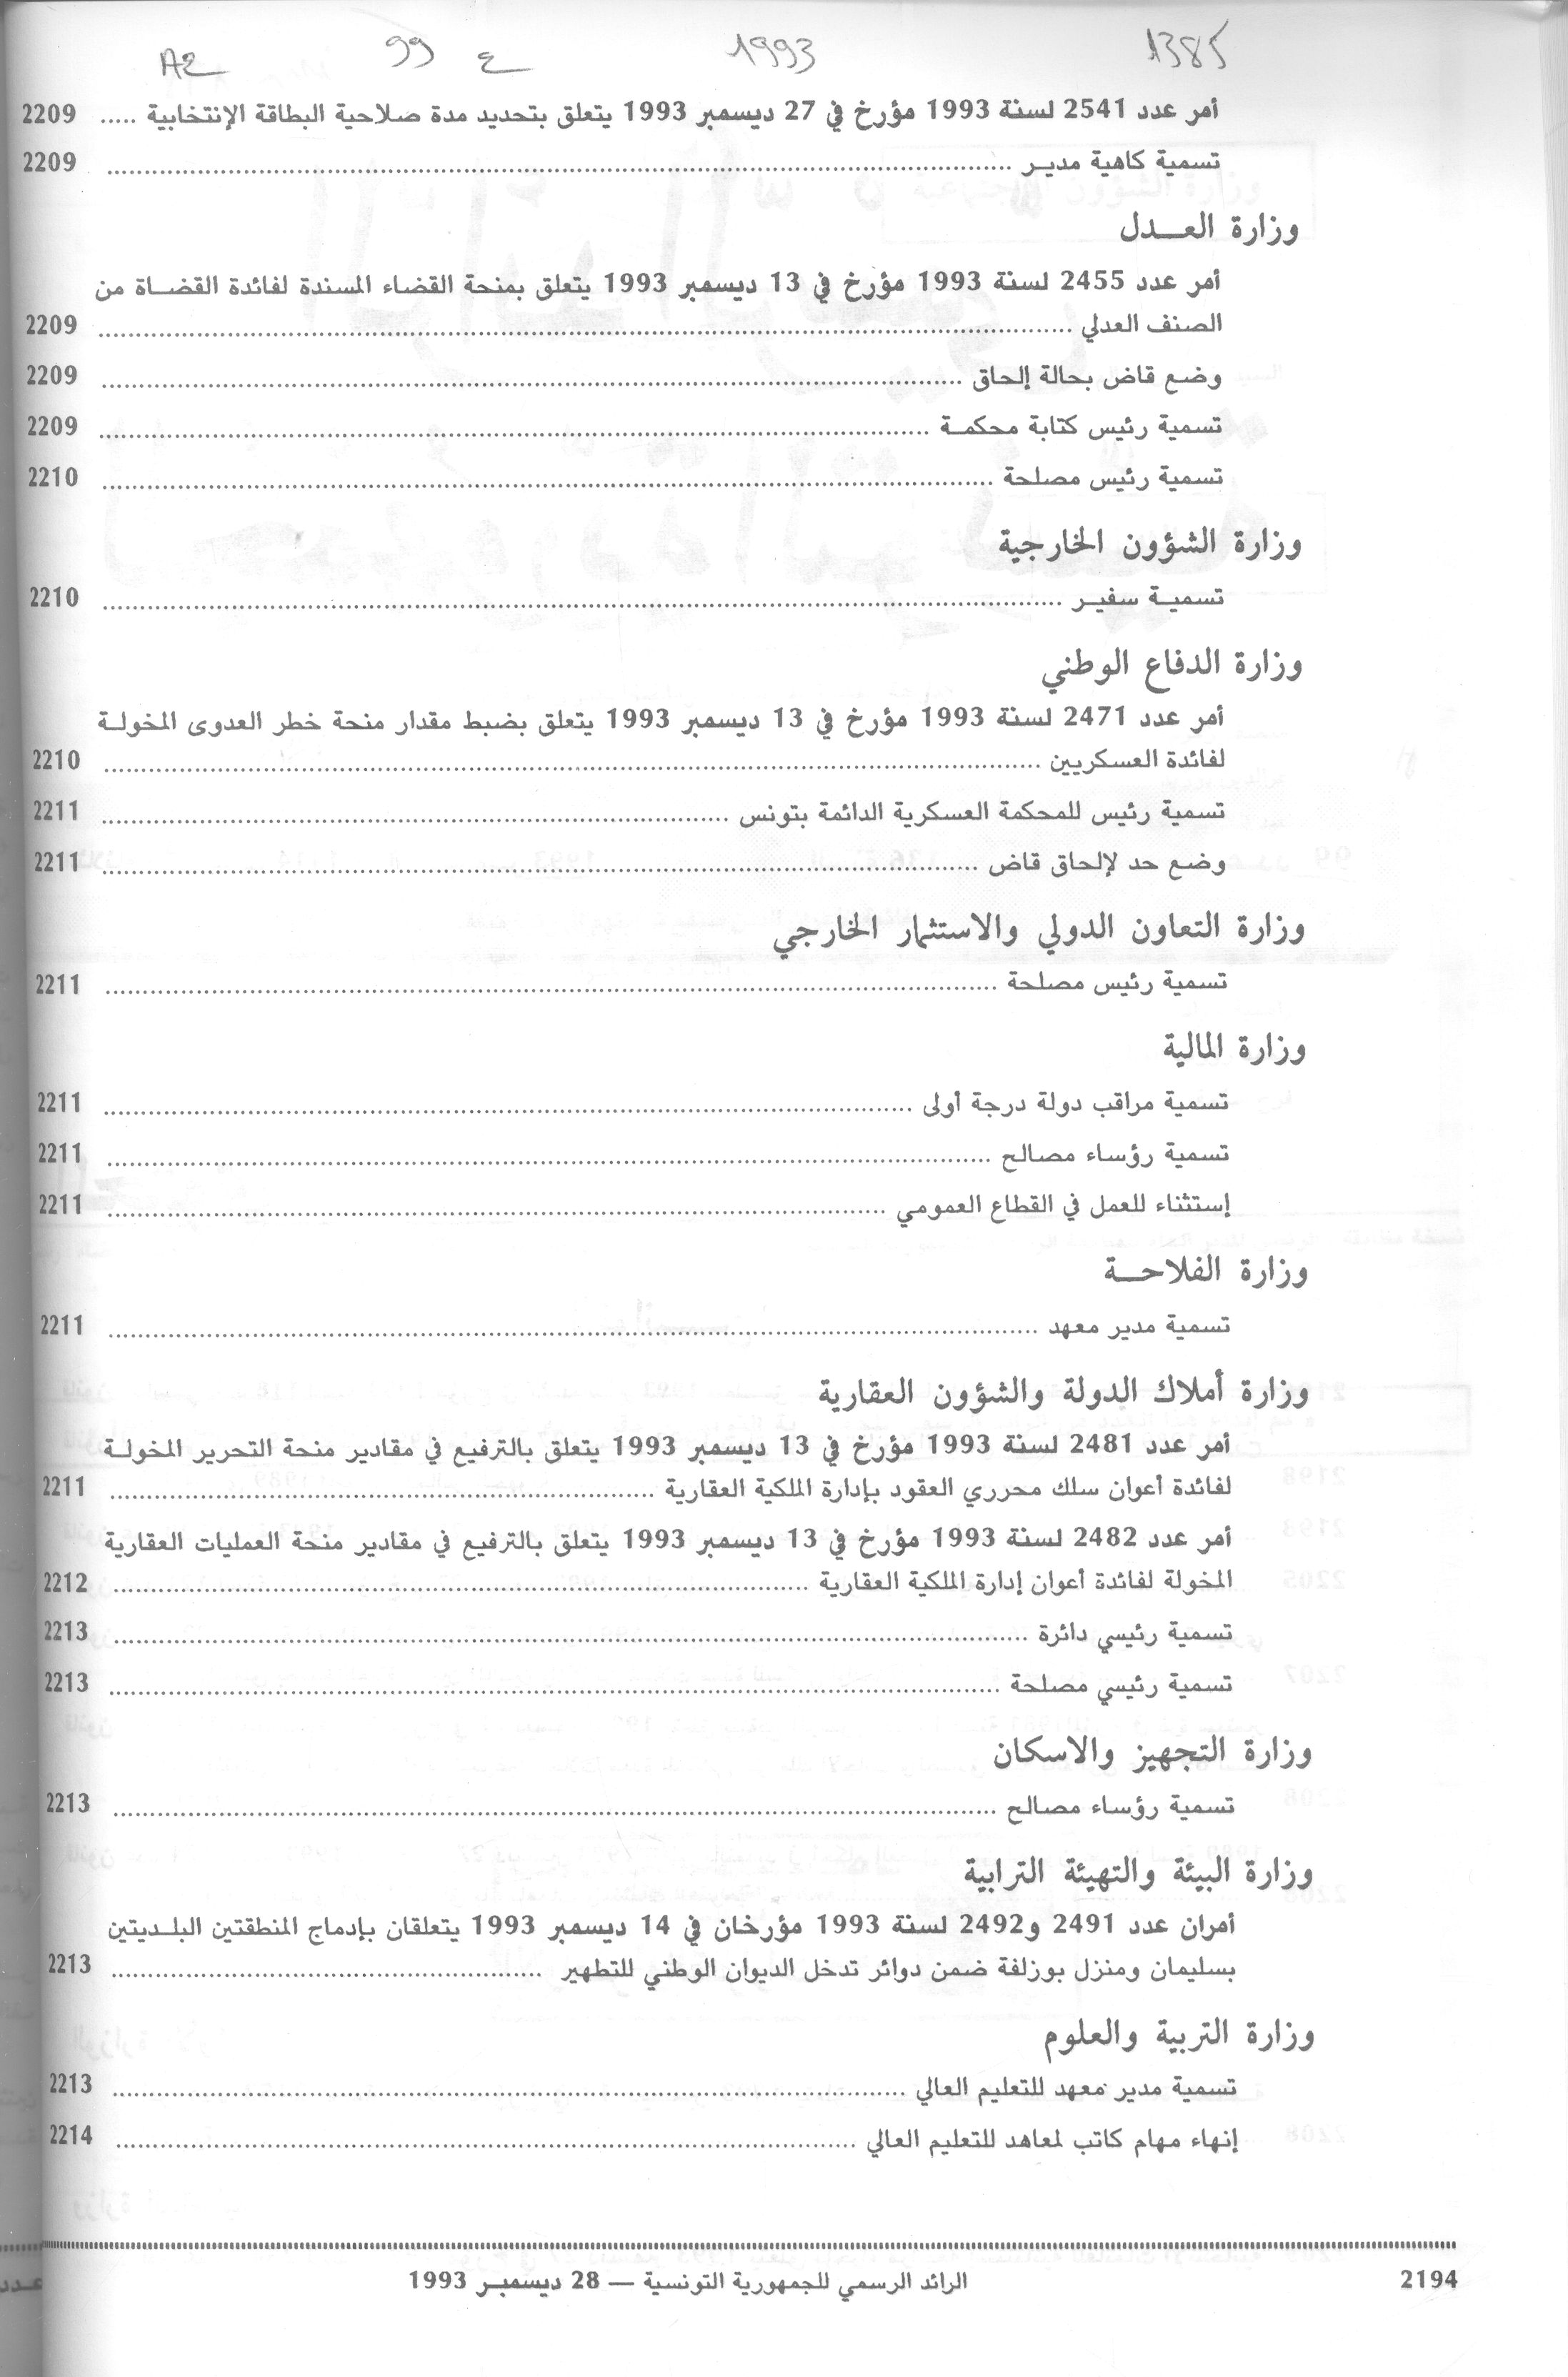 1385 1993 ع 99 A2
أمر عدد 2541 لسنة 1993 مؤرخ في 27 ديسمبر 1993 يتعلق بتحديد مدة صلاحية البطاقة الإنتخابية ..... 2209
تسمية كاهية مديـر ..... 2209
وزارة العـــدل
أمر عدد 2455 لسنة 1993 مؤرخ في 13 ديسمبر 1993 يتعلق بمنحة القضاء المسندة لفائدة القضـاة من
الصنف العدلي ..... 2209
وضع قاض بحالة إلحاق ..... 2209
تسمية رئيس كتابة محكمـة ..... 2209
تسمية رئيس مصلحة ..... 2210
وزارة الشؤون الخارجية
تسميـة سفيـر ..... 2210
وزارة الدفاع الوطني
أمر عدد 2471 لسنة 1993 مؤرخ في 13 ديسمبر 1993 يتعلق بضبط مقدار منحة خطر العدوى المخولـة
لفائدة العسكريين ..... 2210
تسمية رئيس للمحكمة العسكرية الدائمة بتونس ..... 2211
وضع حد لإلحاق قاض ..... 2211
وزارة التعاون الدولي والاستثمار الخارجي
تسمية رئيس مصلحة ..... 2211
وزارة المالية
تسمية مراقب دولة درجة أولى ..... 2211
تسمية رؤساء مصالح ..... 2211
إستثناء للعمل في القطاع العمومي ..... 2211
وزارة الفلاحـــة
تسمية مدير معهد ..... 2211
وزارة أملاك الدولة والشؤون العقارية
أمر عدد 2481 لسنة 1993 مؤرخ في 13 ديسمبر 1993 يتعلق بالترفيع في مقادير منحة التحرير المخولـة
لفائدة أعوان سلك محرري العقود بإدارة الملكية العقارية ..... 2211
أمر عدد 2482 لسنة 1993 مؤرخ في 13 ديسمبر 1993 يتعلق بالترفيع في مقادير منحة العمليات العقارية
المخولة لفائدة أعوان إدارة الملكية العقارية ..... 2212
تسمية رئيسي دائرة ..... 2213
تسمية رئيسي مصلحة ..... 2213
وزارة التجهيز والاسكان
تسمية رؤساء مصالح ..... 2213
وزارة البيئة والتهيئة الترابية
أمران عدد 2491 و2492 لسنة 1993 مؤرخان في 14 ديسمبر 1993 يتعلقان بإدماج المنطقتين البلـديتين
بسليمان ومنزل بوزلفة ضمن دوائر تدخل الديوان الوطني للتطهير ..... 2213
وزارة التربية والعلوم
تسمية مدير معهد للتعليم العالي ..... 2213
إنهاء مهام كاتب لمعاهد للتعليم العالي ..... 2214
2194 الرائد الرسمي للجمهورية التونسية — 28 ديسمبـر 1993